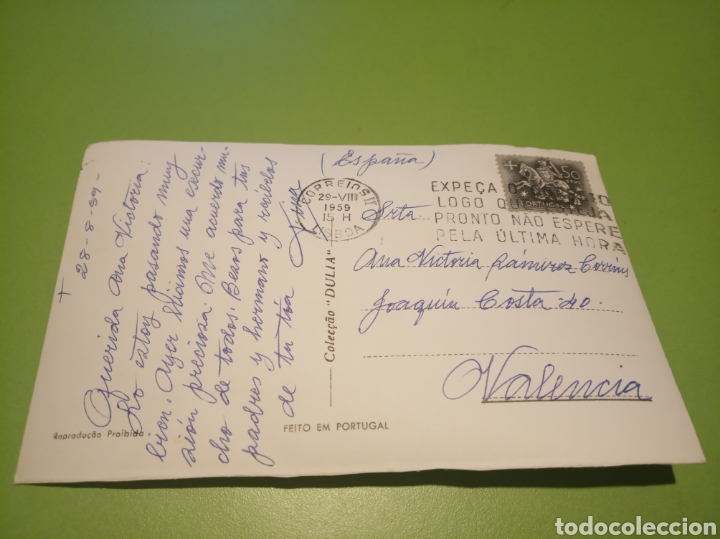 + 28-8-59-
Querida Ana Victoria:
Lo estoy pasando muy
bien. Ayer hicimos una excur-
sión preciosa. Me acuerdo mu-
cho de todos. Besos para tus
padres y hermano y recíbelos
de tu tía
Reprodução Proibida
Colecção "DULIA"
FEITO EM PORTUGAL
(España)
CORREIOS II
29-VIII
1959
15 H
LISBOA
EXPEÇA O
LOGO QU
PRONTO NÃO ESPERE
PELA ÚLTIMA HORA
50
PORTUGAL
Srta
Ana Victoria Ramírez
Joaquín Costa 40.
Valencia
todocoleccion